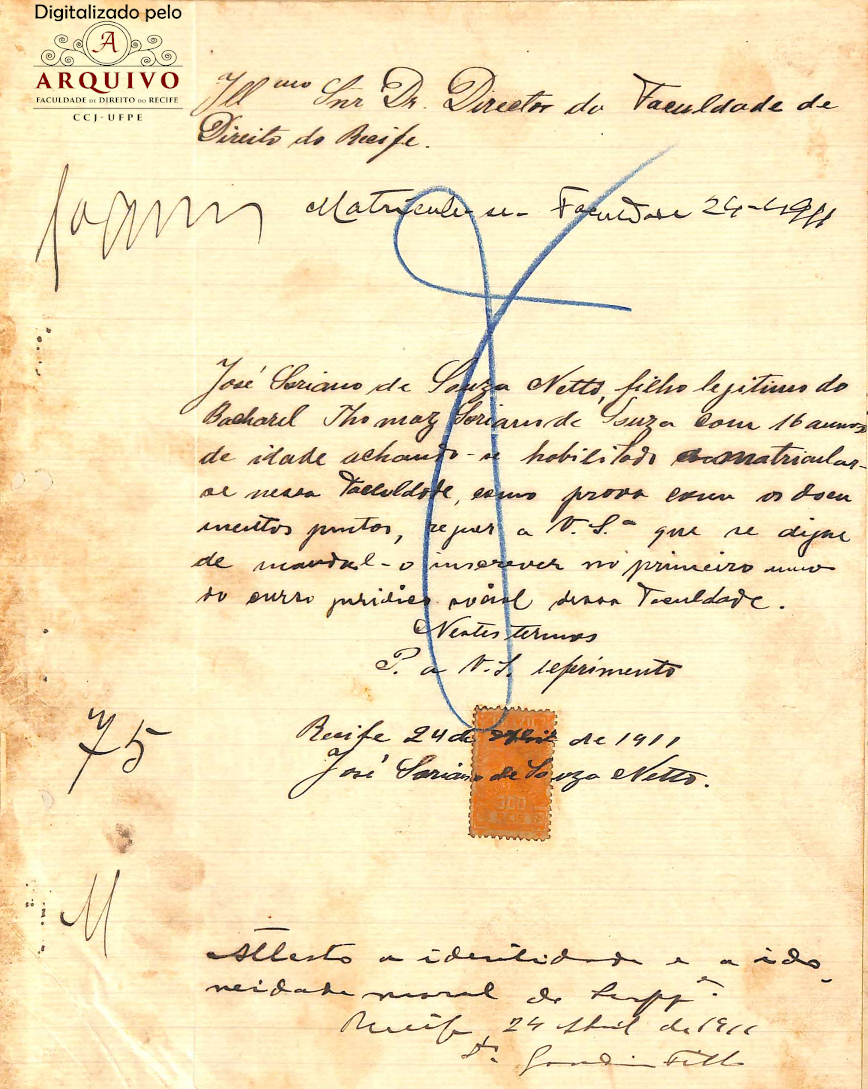 Digitalizado pelo
A
ARQUIVO
FACULDADE DE DIREITO DO RECIFE
CCJ-UFPE
Illmo Snr Dr. Director da Faculdade de
Direito do Recife.
Matricule-se Faculdade 24-4-911
José Soriano de Souza Netto, filho legitimo do
Bacharel Thomaz Soriano de Souza com 16 annos
de idade achando-se habilitado a matricular-
se nessa Faculdade, como prova com os docu
mentos juntos, requer a V. S.a que se digne
de mandal-o inscrever no primeiro anno
do curso juridico social dessa Faculdade.
Nestes termos
P. a V. S. deferimento
Recife 24 de Abril de 1911
José Soriano de Souza Netto.
BRAZIL
300
REIS
75
M
Attesto a identidade e a ido
neidade moral do Suppe.
Recife, 24 Abril de 1911
Dr. Filho